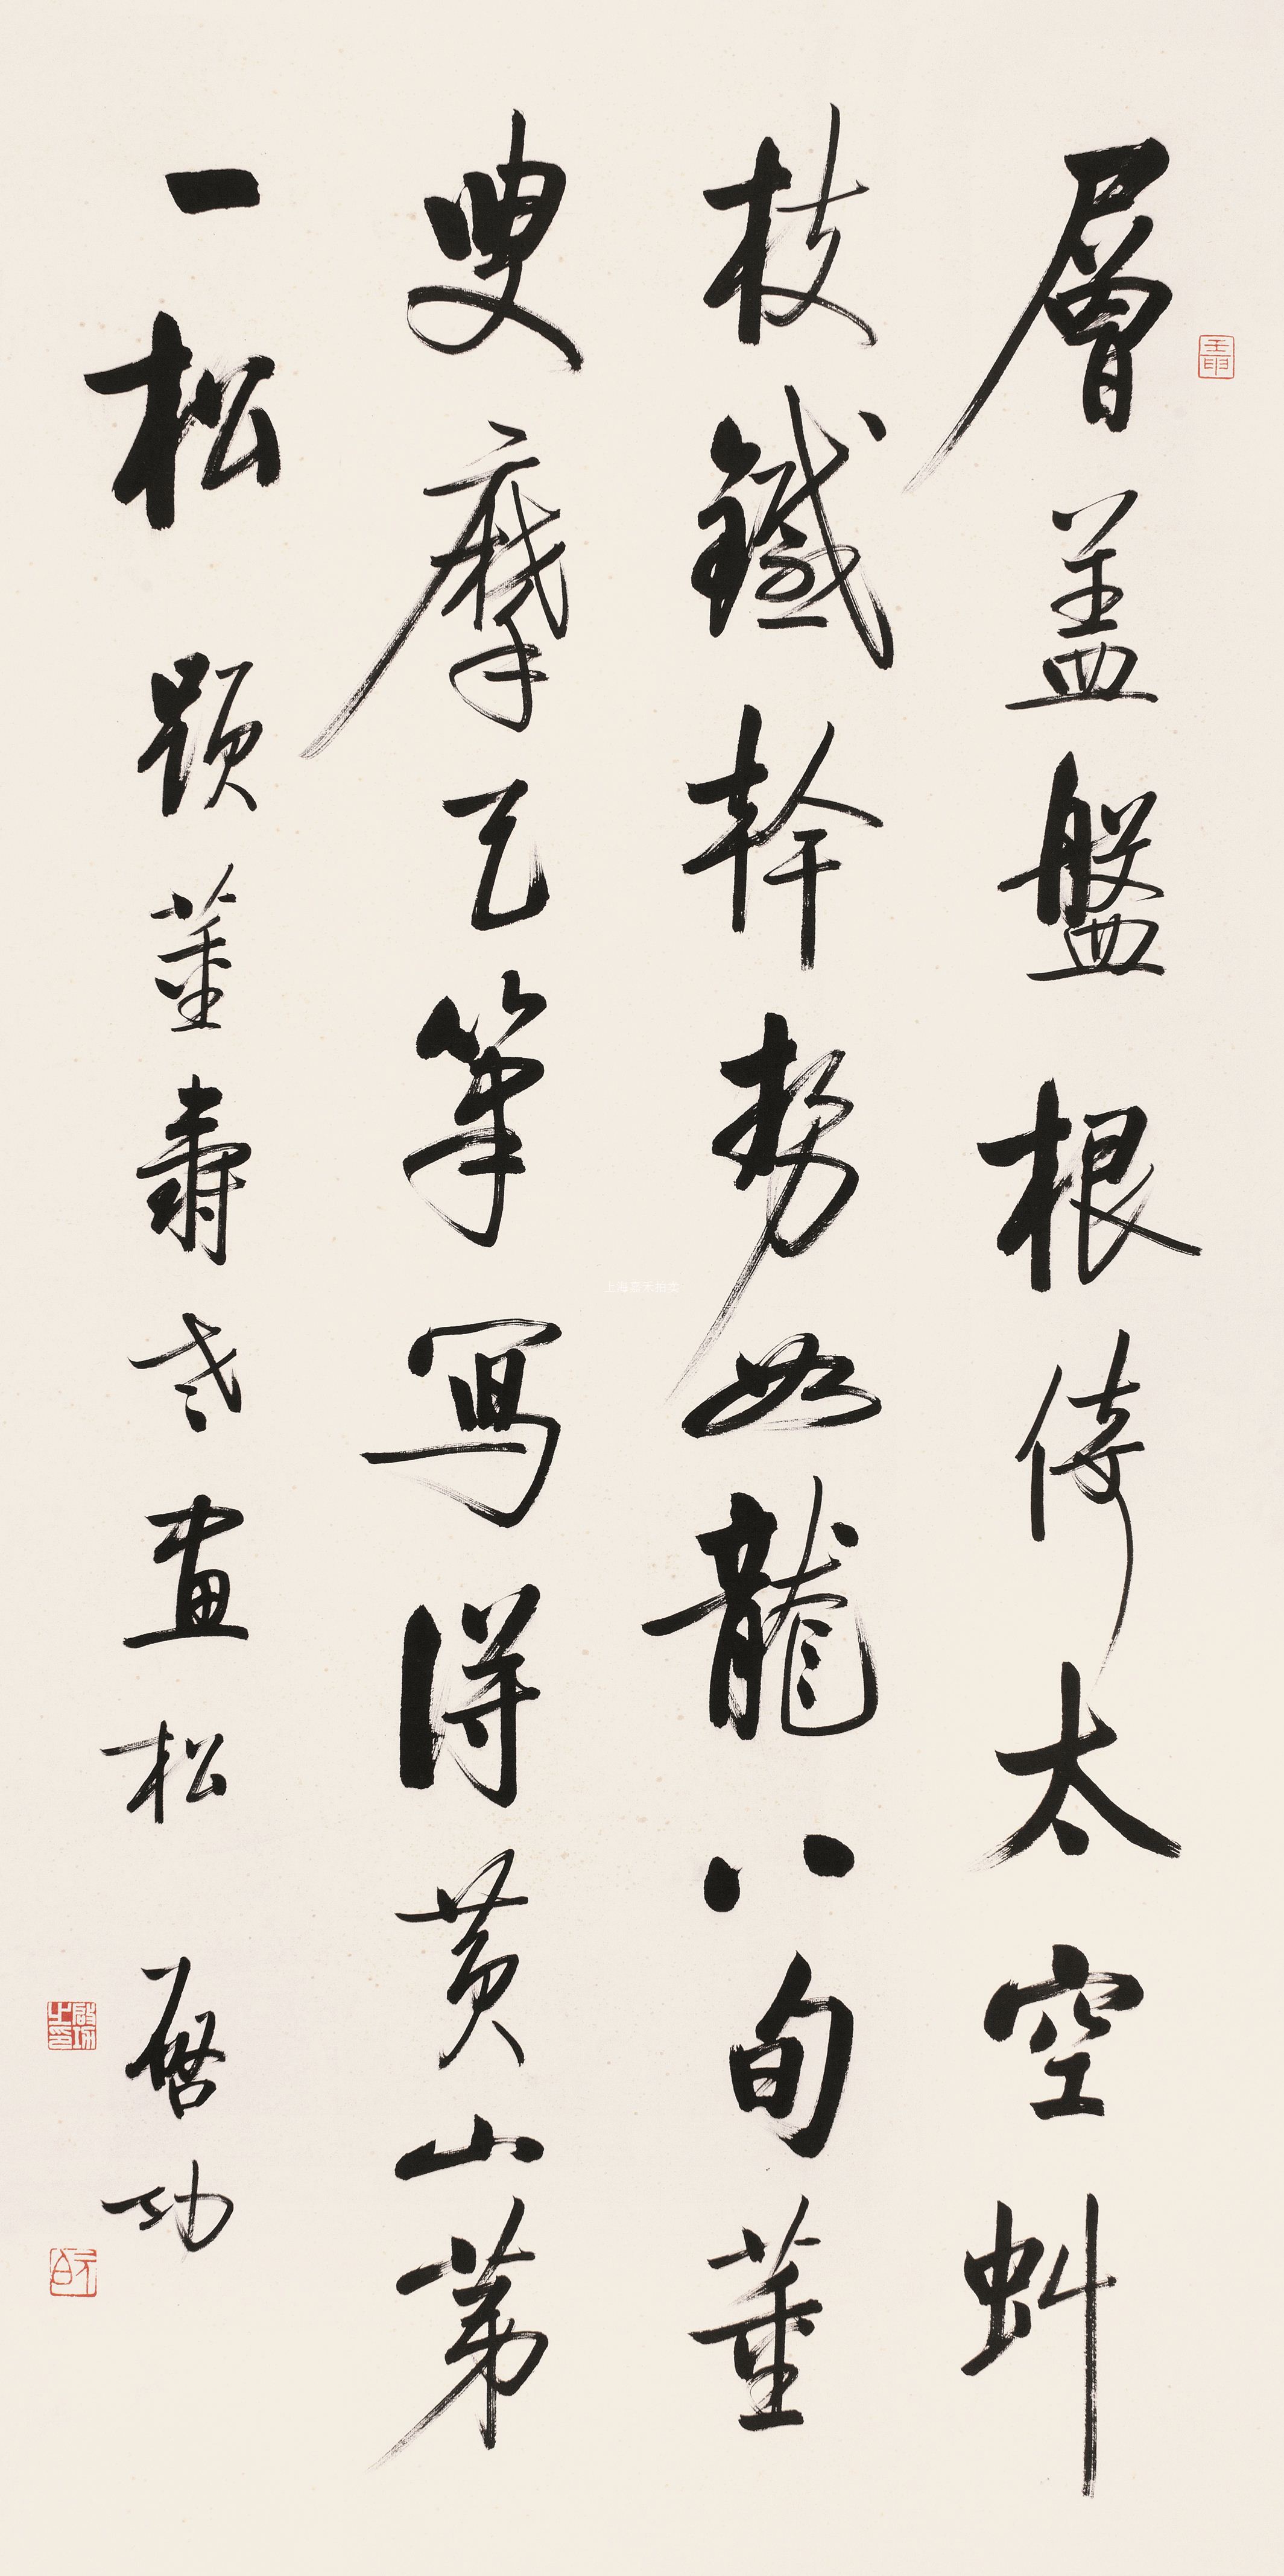 層盖盤根倚太空蚪
枝鐵幹勢如龍八旬董
叟摩天筆寫得黄山第
一松 題董壽老畫松 啓功
啓功之印
上海嘉禾拍卖